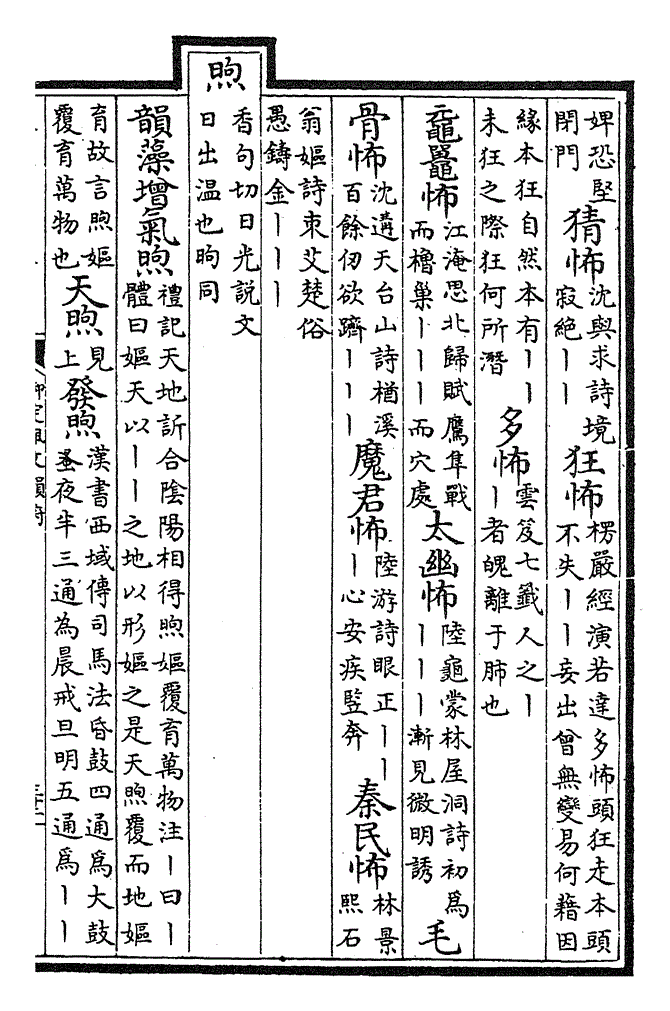 婢恐堅閉門猜怖沈與求詩境寂絶丨丨狂怖楞嚴經演若達多怖頭狂走本頭不失丨丨妄出曾無變易何藉因
緣本狂自然本有丨丨未狂之際狂何所潛多怖雲笈七籤人之丨丨者魄離于肺也
黿鼉怖江淹思北歸賦鷹隼戰而櫓巢丨丨丨而穴處太幽怖陸龜蒙林屋洞詩初為丨丨丨漸見微明誘毛
骨怖沈遘天台山詩楢溪百餘仞欲躋丨丨丨魔君怖陸游詩眼正丨丨丨心安疾豎奔秦民怖林景熙石
翁嫗詩束艾楚俗愚鑄金丨丨丨
煦
香句切日光説文日出温也昫同
韻藻增氣煦禮記天地訢合陰陽相得煦嫗覆育萬物注丨曰丨體曰嫗天以丨丨之地以形嫗之是天煦覆而地嫗
育故言煦嫗覆育萬物也天煦見上發煦漢書西域傳司馬法昏鼓四通為大鼓蚤夜半三通為晨戒旦明五通爲丨丨